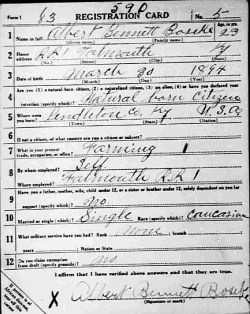 Form 1
590
63 REGISTRATION CARD No. 5
1 Name in full Albert Bennett Boseke 23
(Given name) (Family name)
2 Home address RR1 Falmouth Ky
3 Date of birth March 30 1894
(Month) (Day) (Year)
4 Are you (1) a natural-born citizen, (2) a naturalized citizen, (3) an alien, (4) or have you declared your
intention (specify which)? Natural born Citizen
5 Where were you born? Pendleton Co Ky U.S.A
6 If not a citizen, of what country are you a citizen or subject?
7 What is your present trade, occupation, or office? Farming 1
8 By whom employed? Self
Where employed? Falmouth RR1
9 Have you a father, mother, wife, child under 12, or a sister or brother under 12, solely dependent on you for
support (specify which)? No.
10 Married or single (which)? Single Race (specify which)? Caucasian
11 What military service have you had? Rank None; branch
years; Nation or State
12 Do you claim exemption from draft (specify grounds)? No
I affirm that I have verified above answers and that they are true.
X Albert Bennett Boseke
(Signature or mark)